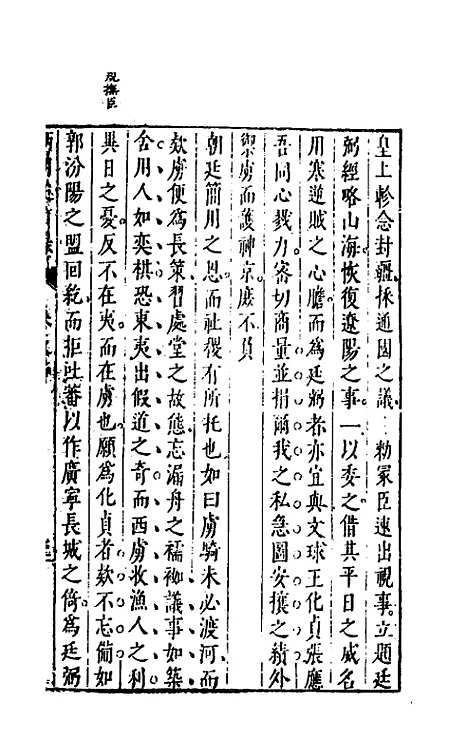 皇上軫念封疆採通國之議勅冢臣速出視事立題廷
弼經略山海恢復遼陽之事一以委之借其平日之威名
用寒逆賊之心膽而為廷弼者亦宜與文球王化貞張應
吾同心戮力密切商量並捐爾我之私急圖安攘之績外
禦虜而護神京庶不負
朝廷簡用之恩而社稷有所托也如曰虜騎未必渡河而
欵虜便為長策習處堂之故態忘漏舟之襦袽議事如築
舍用人如奕棋恐東夷出假道之奇而西虜收漁人之利
異日之憂反不在夷而在虜也願為化貞者欵不忘備如
郭汾陽之盟回紇而拒吐蕃以作廣寧長城之倚為廷弼
撫臣